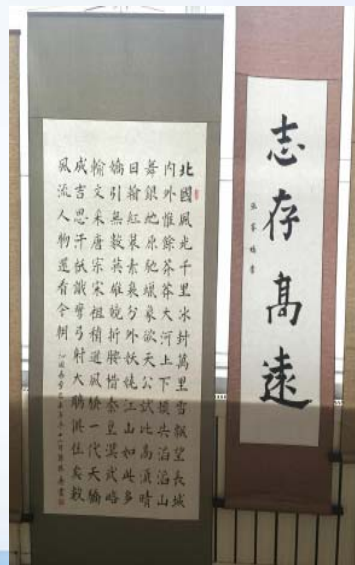 志存髙遠
北國風光千里冰封萬里雪飄望長城
内外惟餘莽莽大河上下頓失滔滔山
舞銀蛇原馳蠟象欲天公試比高須晴
日紅裝素裹分外妖嬈江山如此多
嬌引無數英雄競折腰惜秦皇漢武略
輸文采唐宗宋祖稍遜風騷一代天驕
成吉思汗祇識彎弓射大鵰俱往矣數
風流人物還看今朝